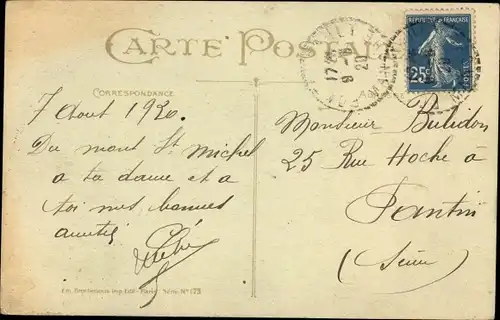 CARTE POSTALE
RÉPUBLIQUE FRANÇAISE
25c POSTES
17
20
CORRESPONDANCE
7 Aout 1920.
Du mont St Michel
a ta dame et a
toi mes bonnes
amitiés
Monsieur
25 Rue Hoche à
Pantin
(Seine)
Imp. Édit. - Paris Série N° 173